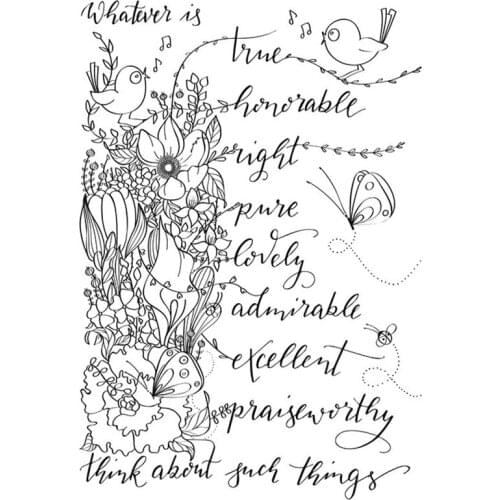 Whatever is
true
honorable
right
pure
lovely
admirable
excellent
praiseworthy
think about such things